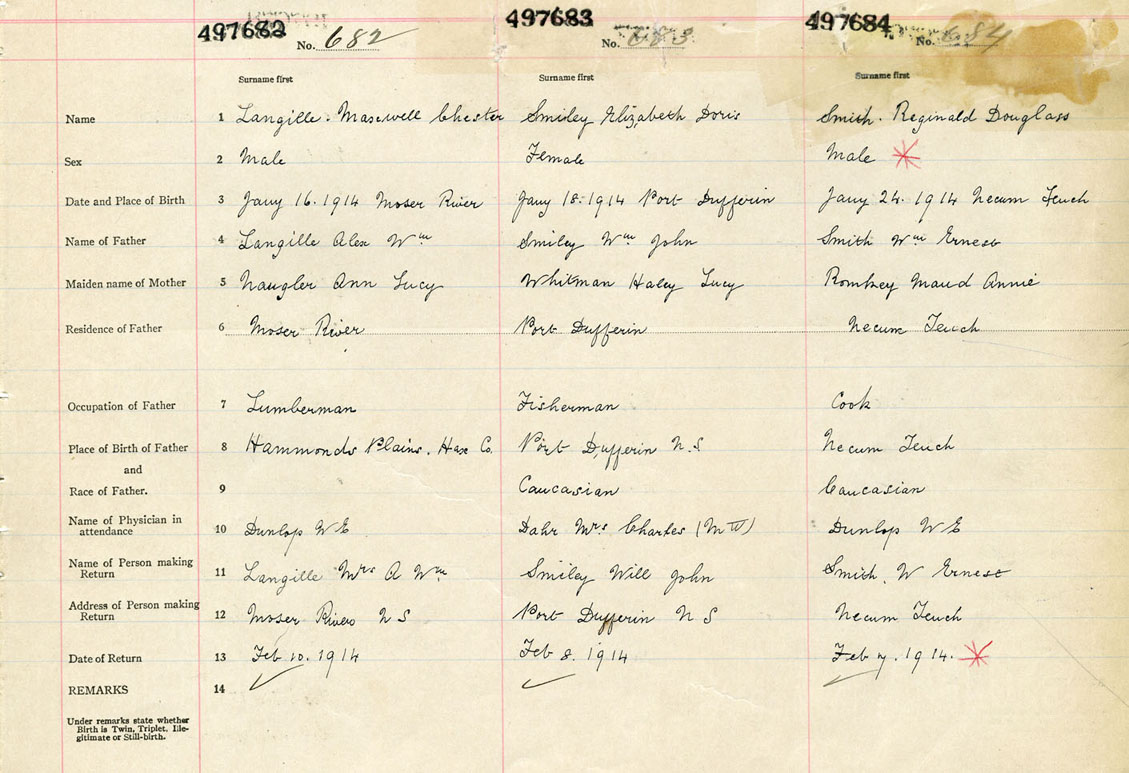 497682 497683 497684
No. 682 No. 683 No. 684
Surname first Surname first Surname first
Name 1 Langille. Maxwell Chester Smiley Elizabeth Doris Smith. Reginald Douglass
Sex 2 Male Female Male
Date and Place of Birth 3 Jany 16. 1914 Moser River Jany 18. 1914 Port Dufferin Jany 24. 1914 Necum Teuch
Name of Father 4 Langille Alex Wm Smiley Wm John Smith Wm Ernest
Maiden name of Mother 5 Naugler Ann Lucy Whitman Haley Lucy Romkey Maud Annie
Residence of Father 6 Moser River Port Dufferin Necum Teuch
Occupation of Father 7 Lumberman Fisherman Cook
Place of Birth of Father 8 Hammonds Plains. Hax Co. Port Dufferin N.S Necum Teuch
and
Race of Father. 9 Caucasian Caucasian
Name of Physician in
attendance 10 Dunlop W E Dahr Mrs Charles (M W) Dunlop W E
Name of Person making
Return 11 Langille Mrs A Wm Smiley Will John Smith. W Ernest
Address of Person making
Return 12 Moser River N S Port Dufferin N S Necum Teuch
Date of Return 13 Feb 10. 1914 Feb 8. 1914 Feb 7. 1914.
REMARKS 14
Under remarks state whether
Birth is Twin, Triplet, Ille-
gitimate or Still-birth.